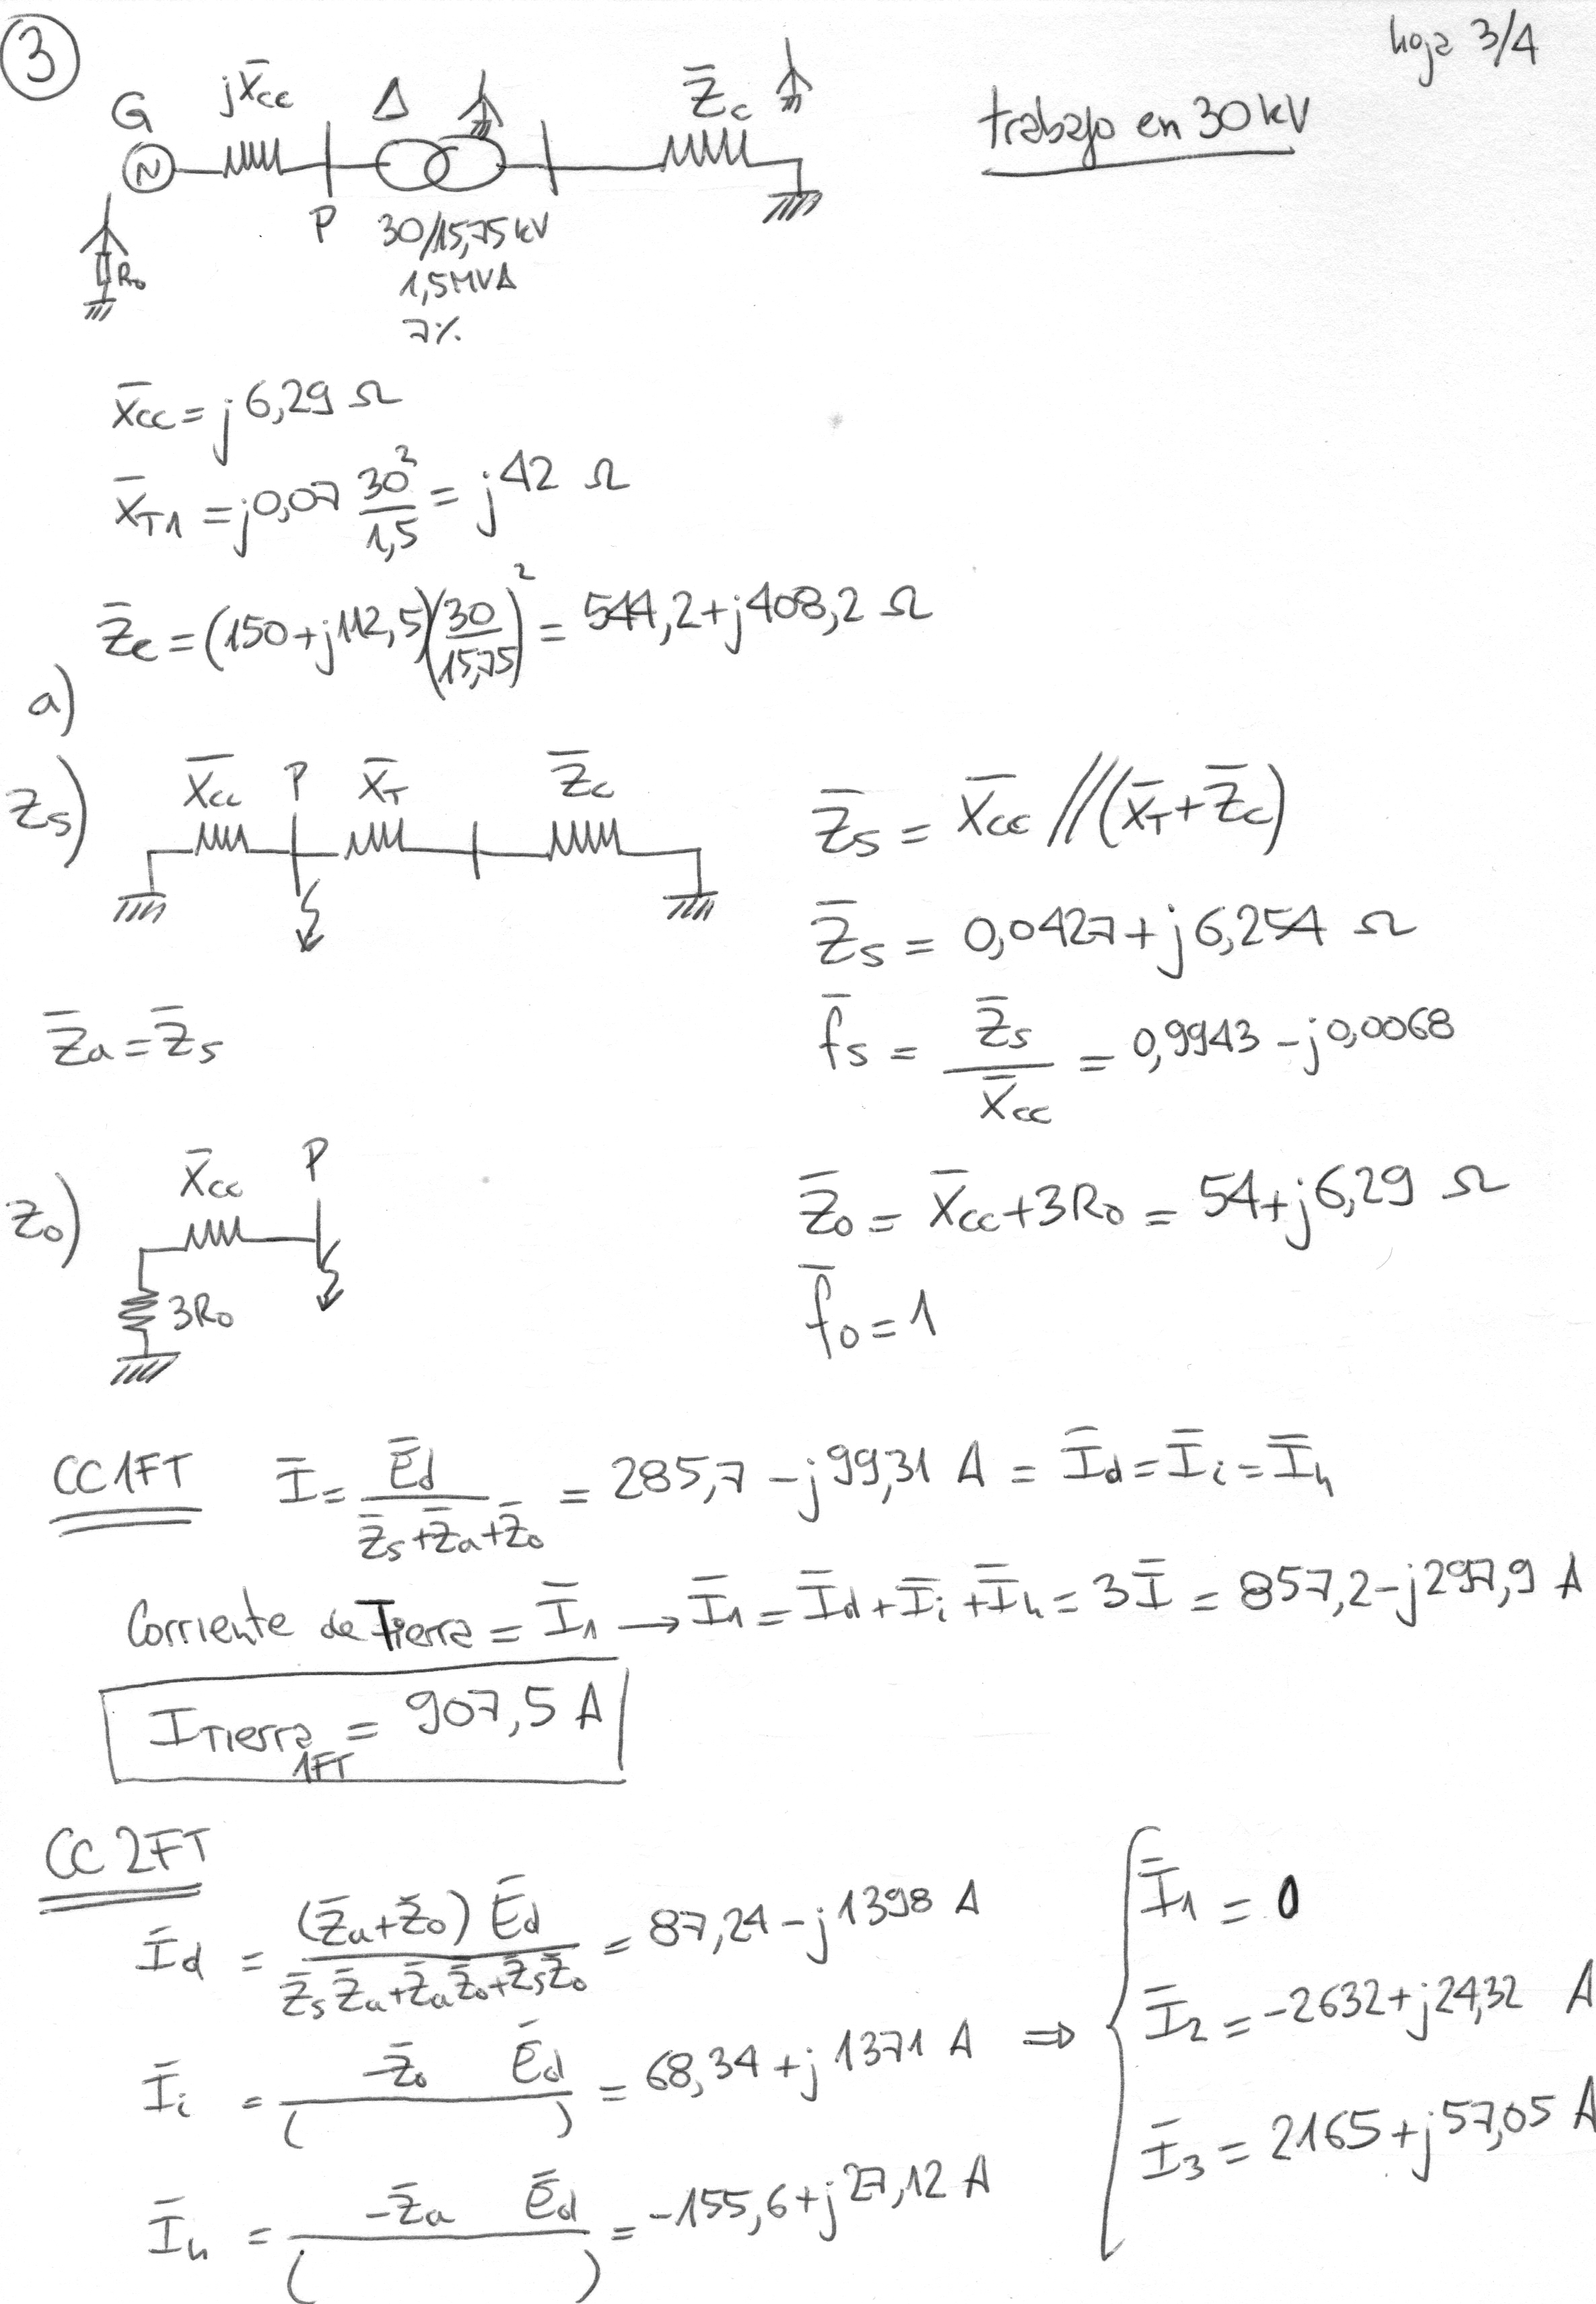 ③ hoja 3/4
G jX̄cc Δ Z̄c
trabajo en 30 kV
N P 30/15,75 kV
R₀ 1,5 MVA
7%
X̄cc = j6,29 Ω
X̄T1 = j0,07 30²/1,5 = j42 Ω
Z̄c = (150+j112,5)(30/15,75)² = 544,2+j408,2 Ω
a)
Zs) X̄cc P X̄T Z̄c
Z̄s = X̄cc // (X̄T+Z̄c)
Z̄s = 0,0427+j6,254 Ω
Z̄a = Z̄s
f̄s = Z̄s/X̄cc = 0,9943 - j0,0068
Z₀) X̄cc P
3R₀
Z̄₀ = X̄cc+3R₀ = 54+j6,29 Ω
f̄₀ = 1
CC1FT Ī = Ēd/(Z̄s+Z̄a+Z̄₀) = 285,7 - j99,31 A = Īd = Īi = Īh
Corriente de Tierra = Ī1 → Ī1 = Īd+Īi+Īh = 3Ī = 857,2 - j297,9 A
ITierra 1FT = 907,5 A
CC 2FT
Īd = (Z̄a+Z̄₀) Ēd/(Z̄sZ̄a+Z̄aZ̄₀+Z̄sZ̄₀) = 87,24 - j1398 A
Īi = -Z̄₀ Ēd/( ) = 68,34 + j1371 A
Īh = -Z̄a Ēd/( ) = -155,6 + j27,12 A
⇒ { Ī1 = 0
Ī2 = -2632+j24,32 A
Ī3 = 2165+j57,05 A